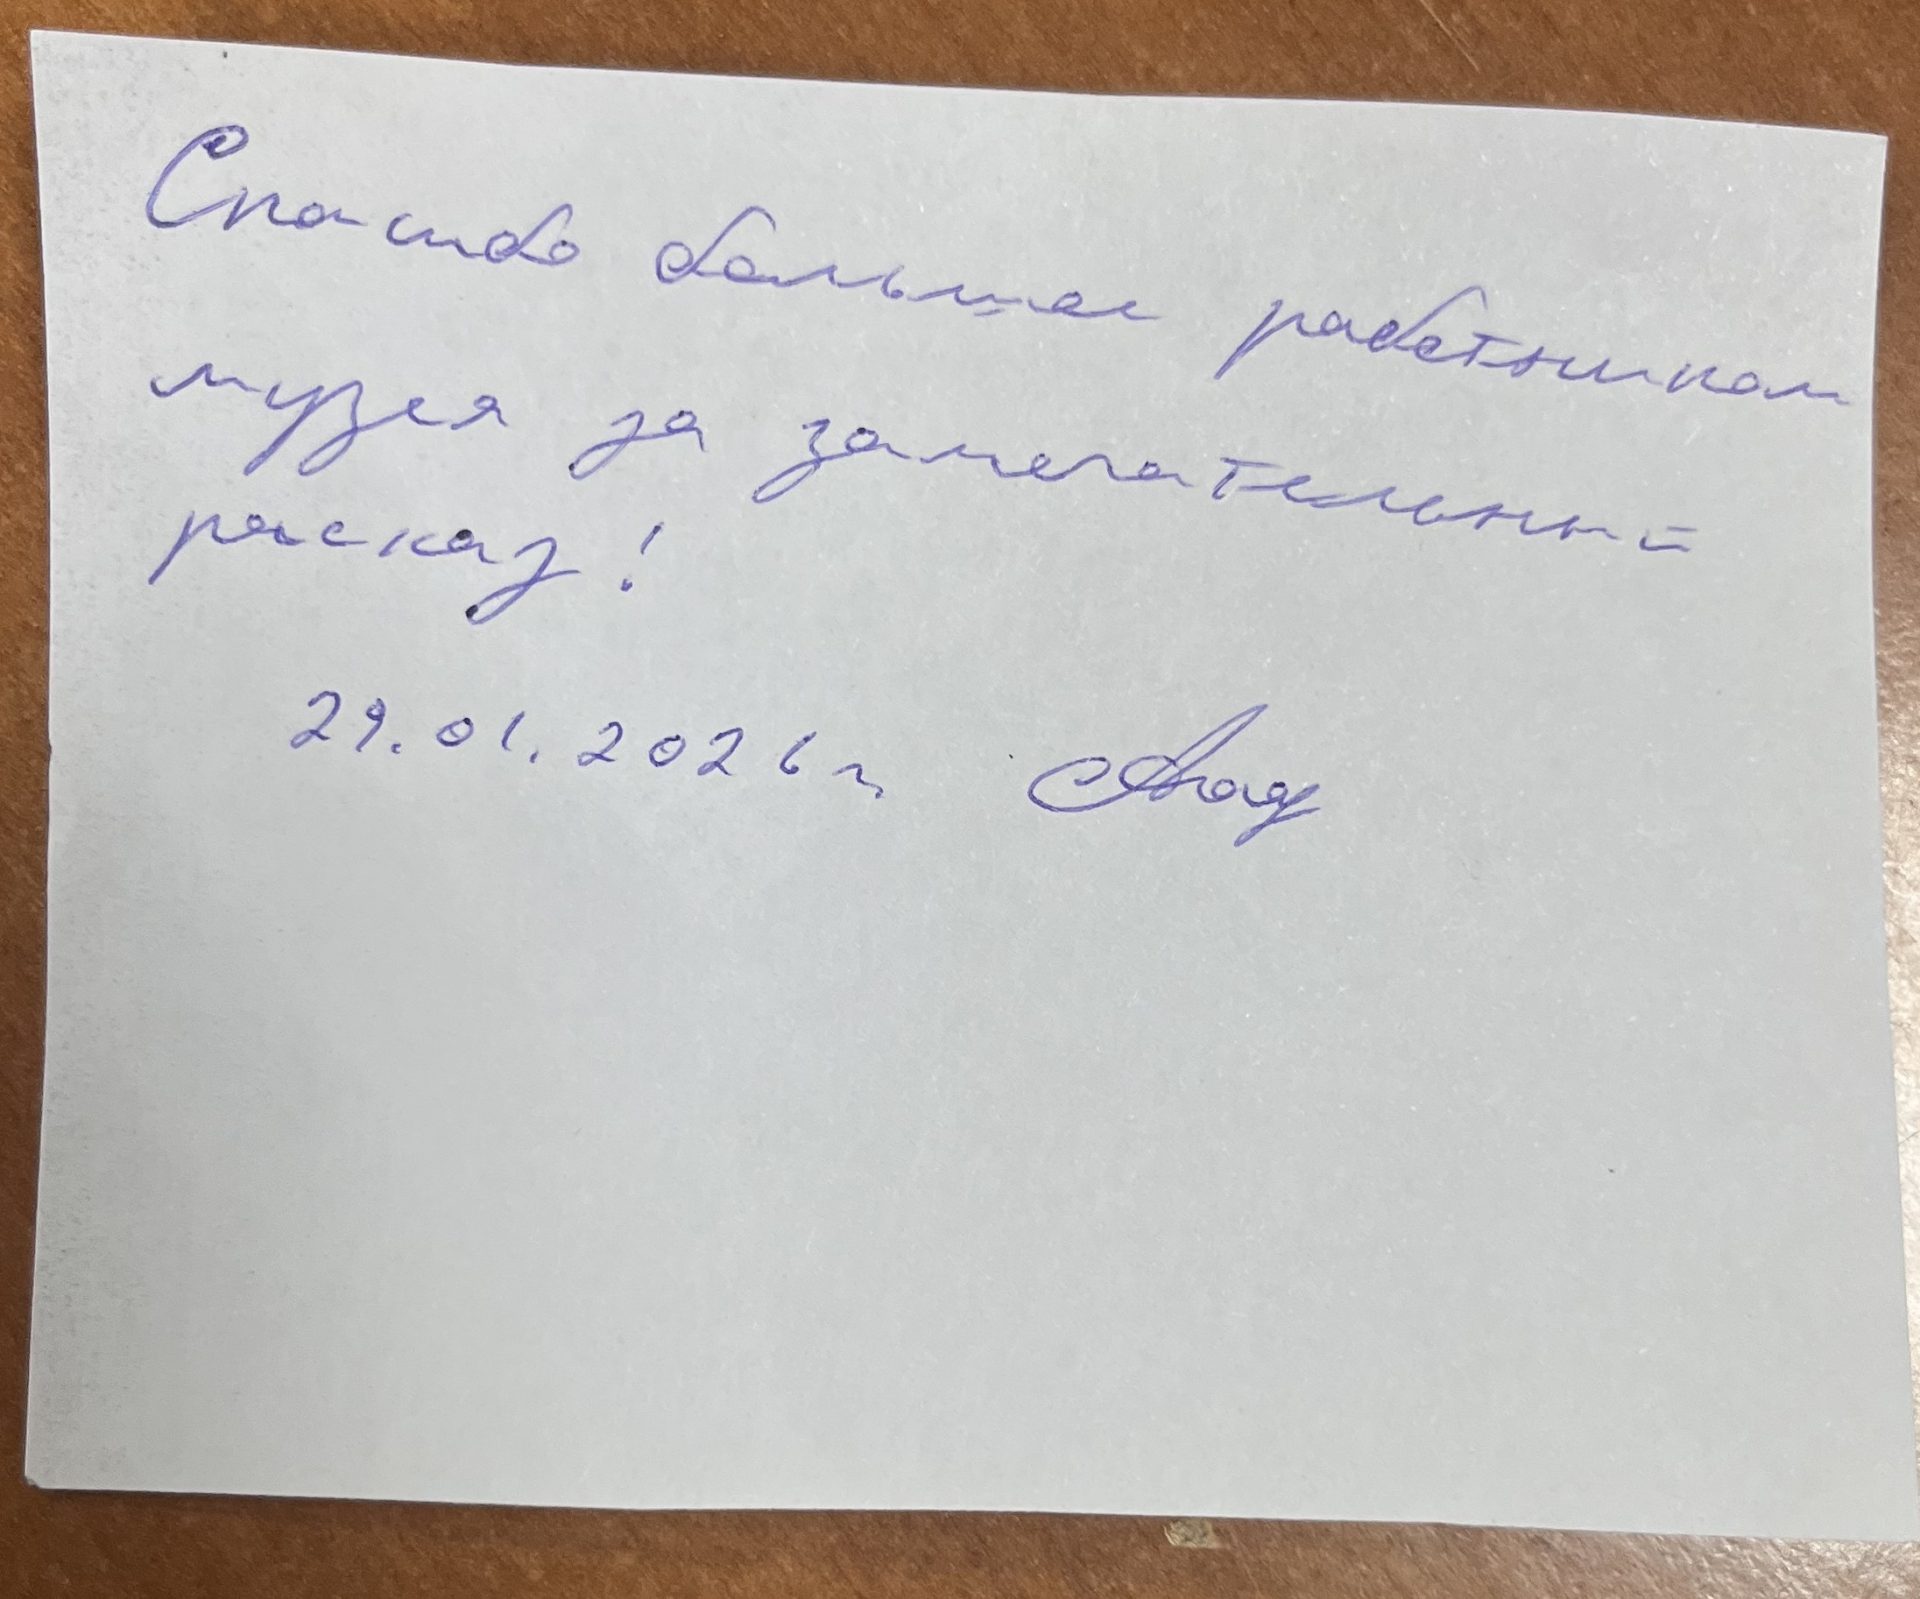 Спасибо большое работникам
музея за замечательный
расказ!
29.01.2026 г.